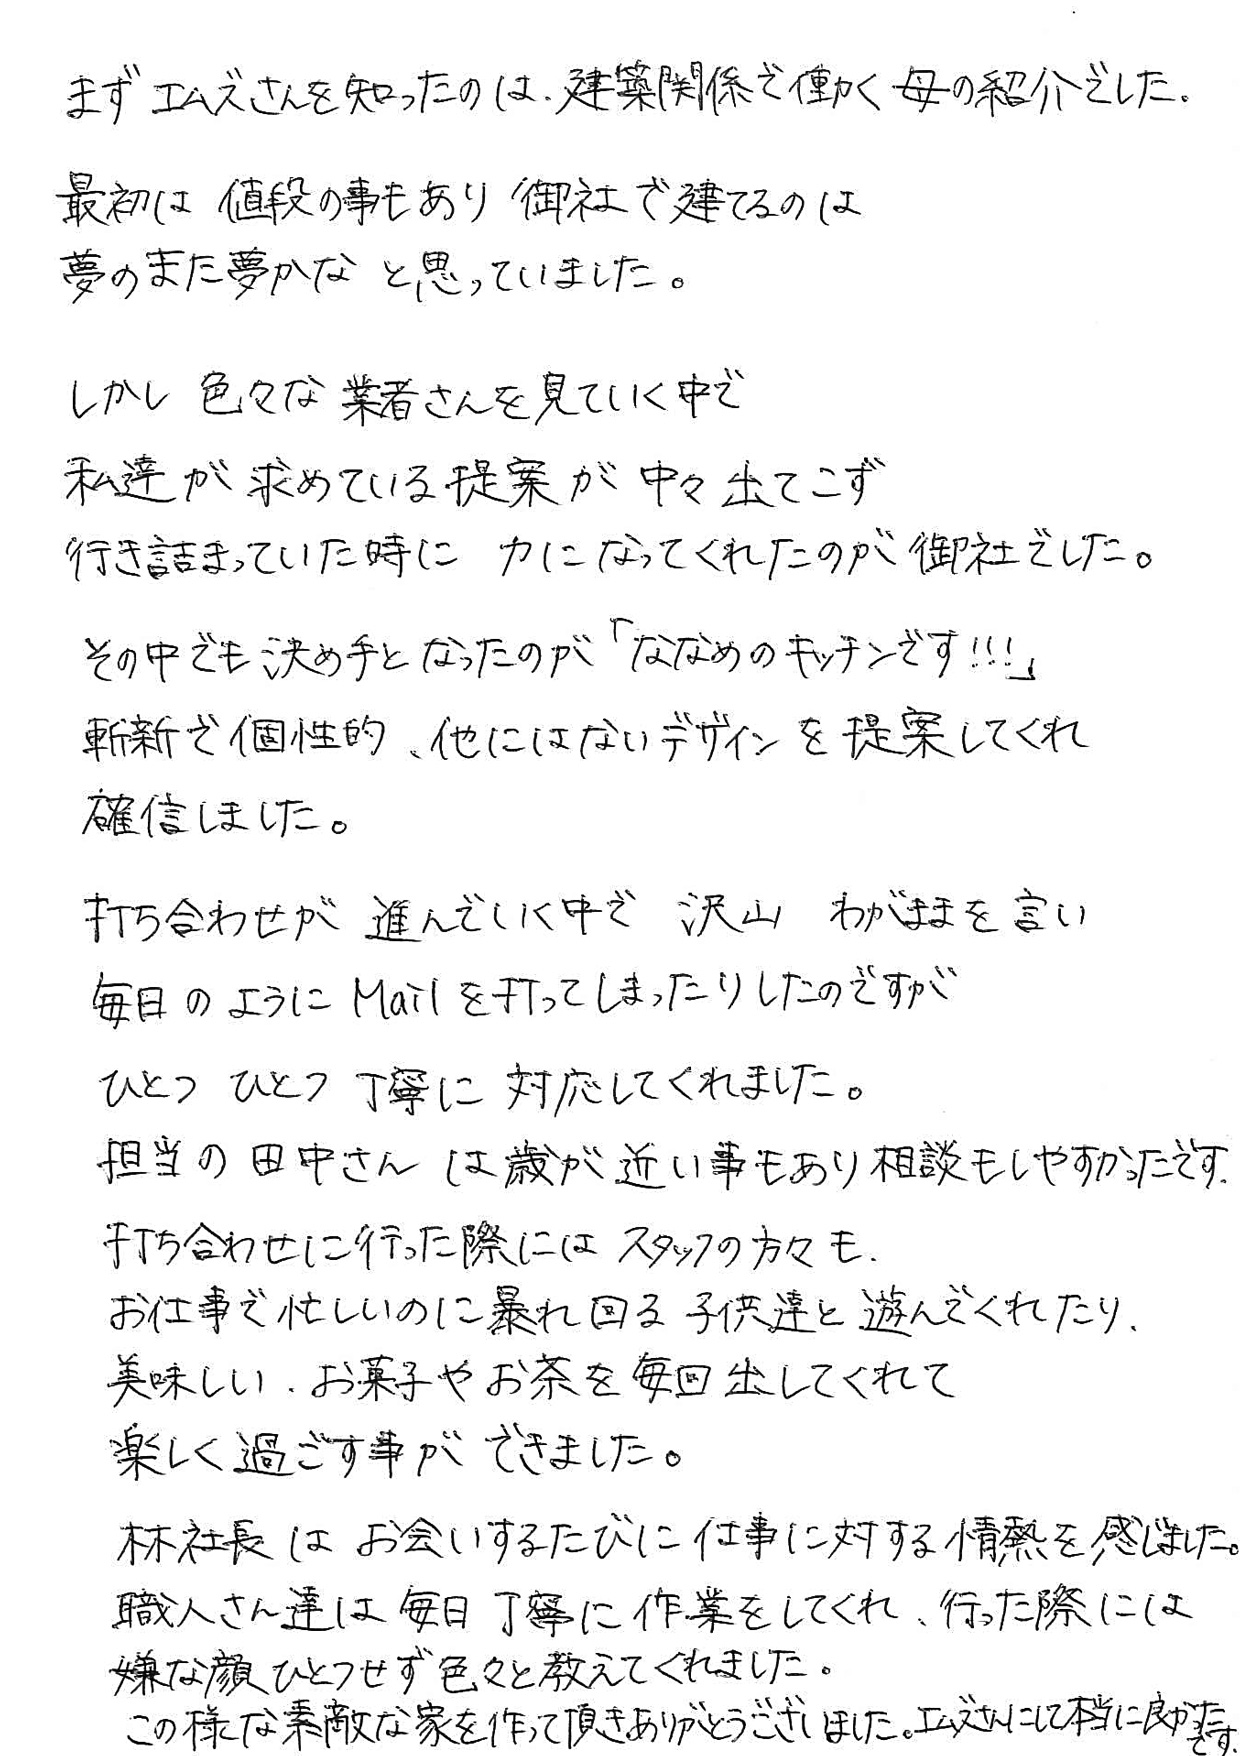 まず エムズさんを知ったのは、建築関係で働く 母の紹介でした。
最初は 値段の事もあり 御社で建てるのは
夢のまた夢かな と思っていました。
しかし 色々な 業者さんを見ていく中で
私達が 求めている提案が 中々出てこず
行き詰まっていた時に 力になってくれたのが 御社でした。
その中でも決め手となったのが「ななめのキッチンです!!!」
斬新で個性的、他にはないデザインを提案してくれ
確信しました。
打ち合わせが 進んでいく中で 沢山 わがままを言い
毎日のようにMailを打ってしまったりしたのですが
ひとつ ひとつ 丁寧に 対応してくれました。
担当の 田中さん は歳が近い事もあり相談もしやすかったです。
打ち合わせに行った際には スタッフの方々も、
お仕事で忙しいのに暴れ回る 子供達と遊んでくれたり、
美味しい、お菓子やお茶を毎回出してくれて
楽しく過ごす事が できました。
林社長は お会いするたびに 仕事に対する情熱を感じました。
職人さん達は 毎日 丁寧に作業をしてくれ、行った際には
嫌な顔ひとつせず色々と教えてくれました。
この様な素敵な家を作って頂きありがとうございました。エムズさんにして本当に良かった
です。